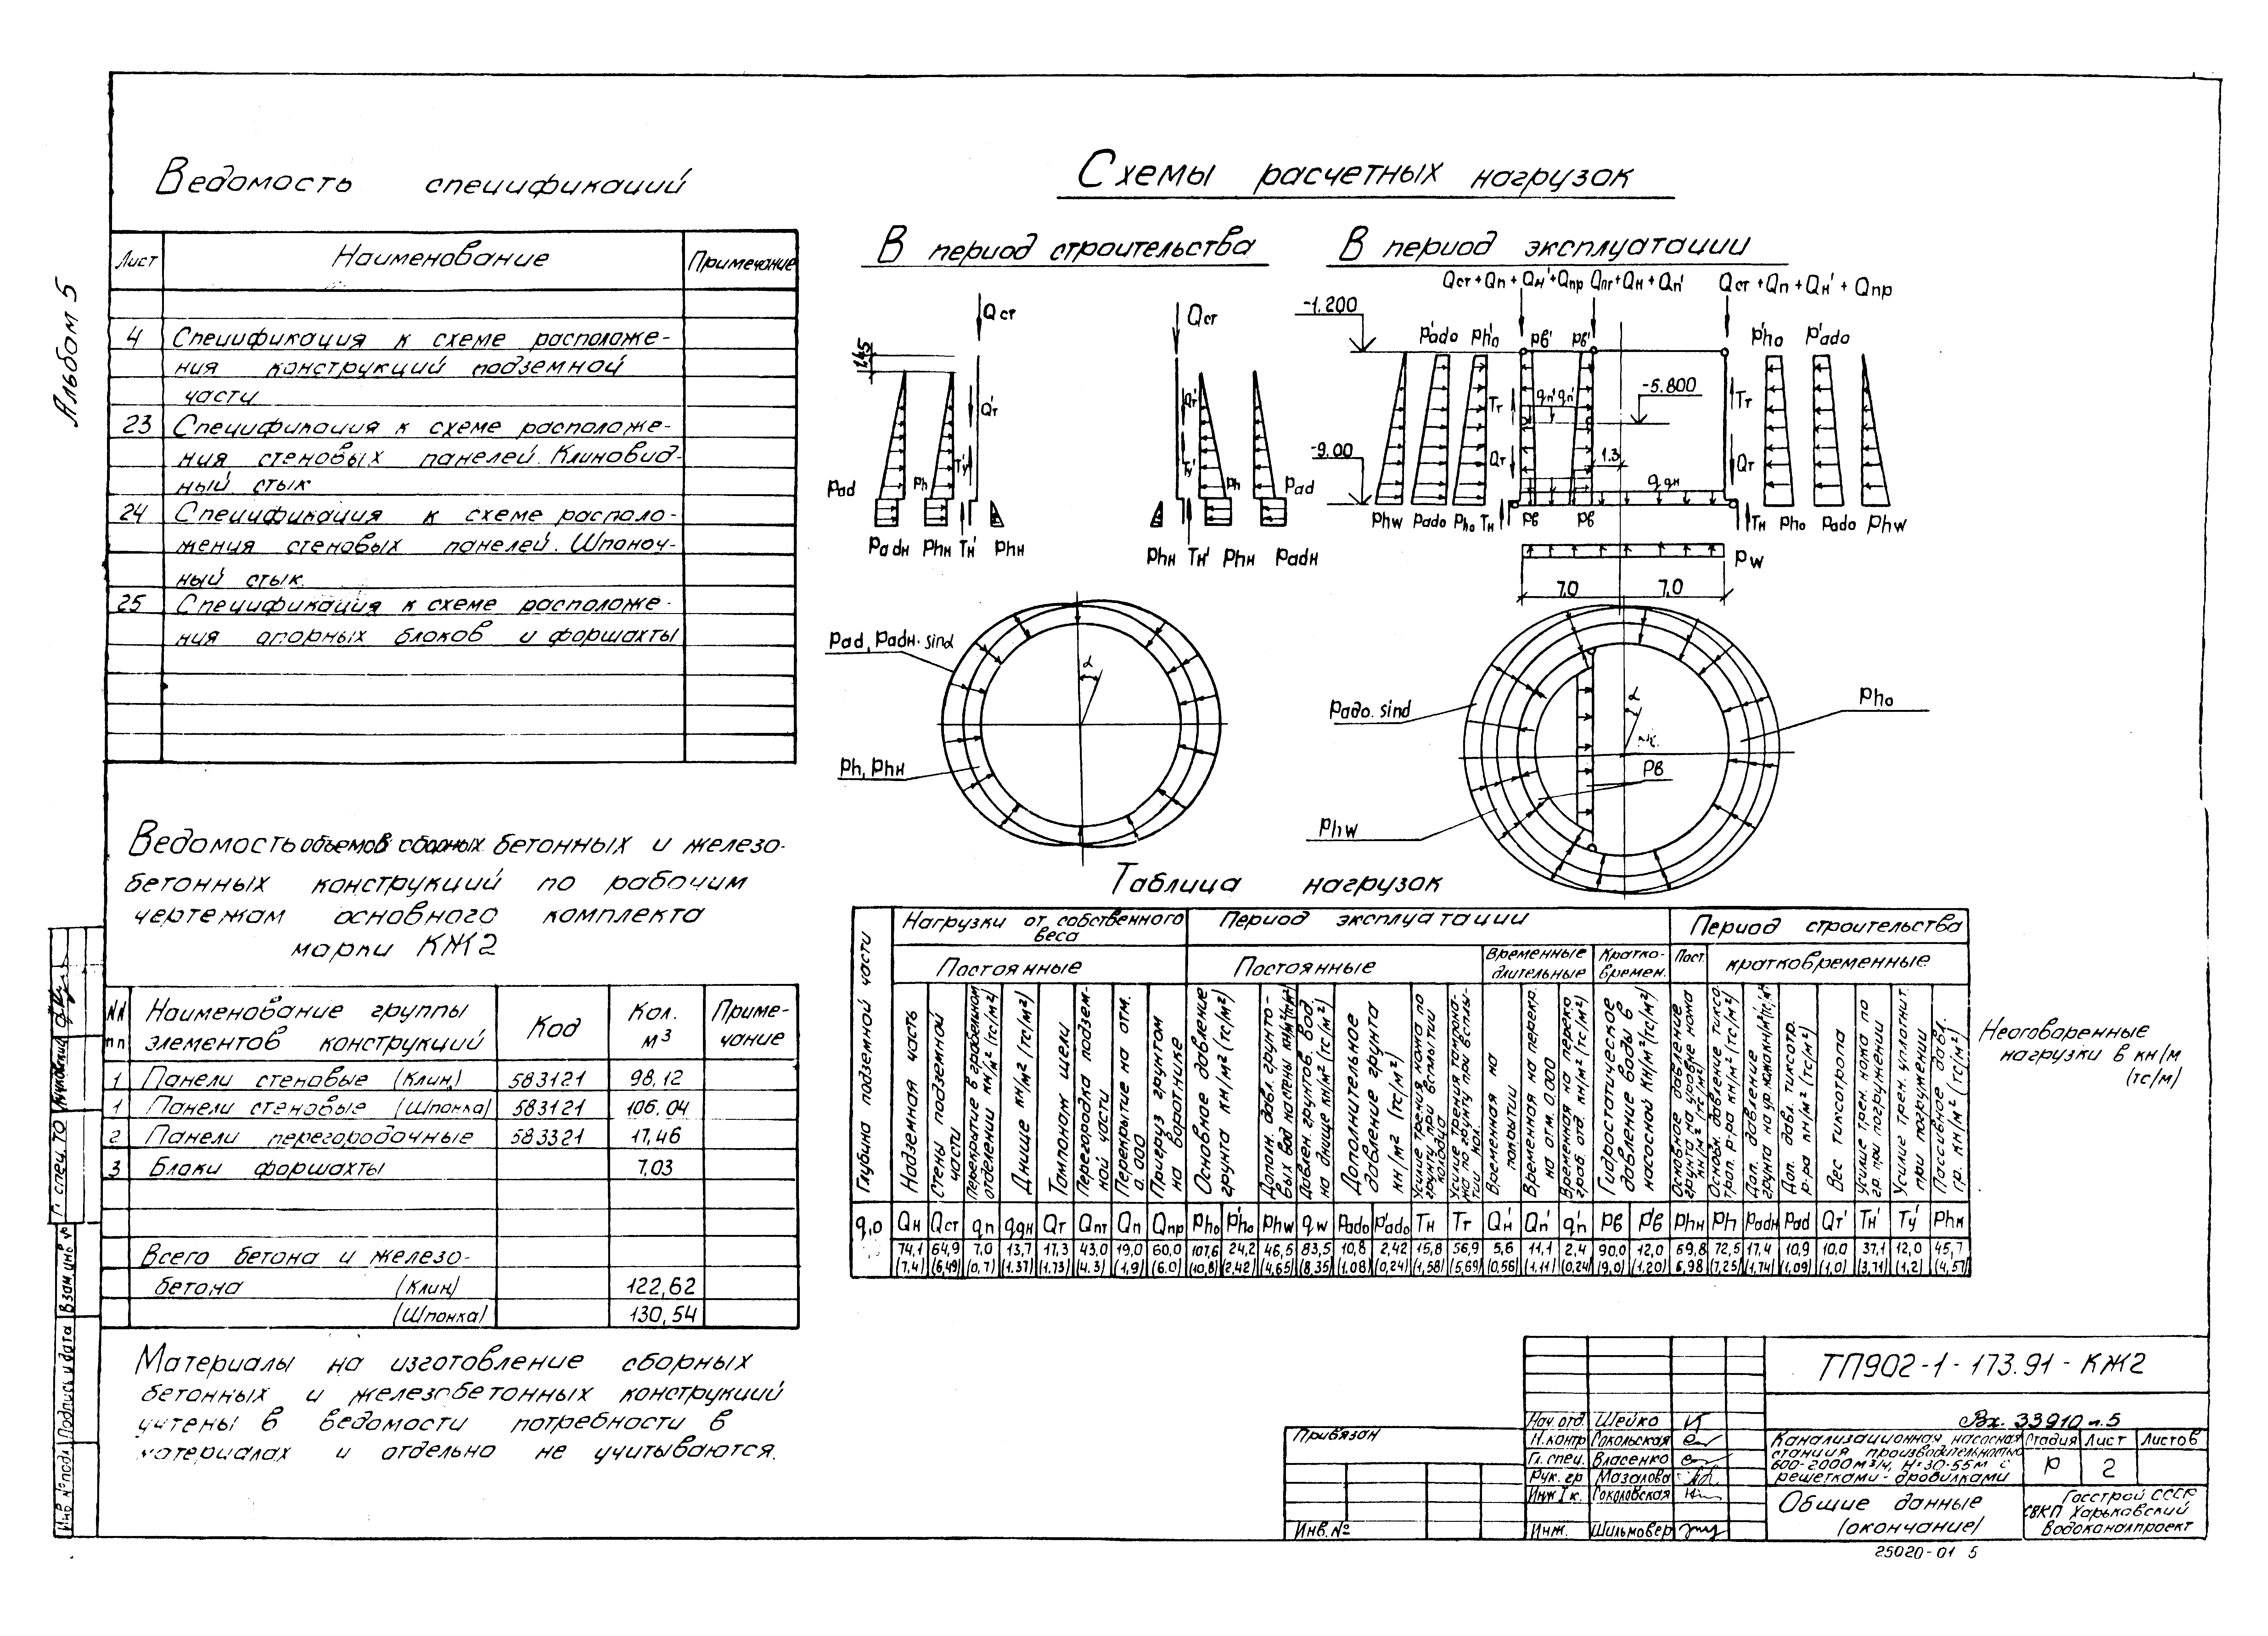 Альбом 5
Ведомость спецификаций
Лист Наименование Примечание
4 Спецификация к схеме расположе-
ния конструкций подземной
части
23 Спецификация к схеме расположе-
ния стеновых панелей. Клиновид-
ный стык
24 Спецификация к схеме располо-
жения стеновых панелей. Шпоноч-
ный стык.
25 Спецификация к схеме расположе-
ния опорных блоков и форшахты
Ведомость объемов сборных бетонных и железо-
бетонных конструкций по рабочим
чертежам основного комплекта
марки КЖ2
NN пп Наименование группы элементов конструкций Код Кол. м³ Приме-чание
1 Панели стеновые (Клин) 583121 98,12
1 Панели стеновые (Шпонка) 583121 106,04
2 Панели перегородочные 583321 17,46
3 Блоки форшахты 7,03
Всего бетона и железо-
бетона (Клин) 122,62
(Шпонка) 130,54
Материалы на изготовление сборных
бетонных и железобетонных конструкций
учтены в ведомости потребности в
материалах и отдельно не учитываются.
Схемы расчетных нагрузок
В период строительства
Qст Qст
1,45
Q'т Q'т
T'у T'у
Pad Ph Ph Pad
Padн Phн Tн' Phн Phн Tн' Phн Padн
Pad, Padн·sinα
α
Ph, Phн
В период эксплуатации
Qст+Qп+Qн'+Qпр Qпг+Qн+Qп' Qст+Qп+Qн'+Qпр
-1.200
P'ado Ph'o Pв' Pв' P'ho P'ado
-5.800
qп' qп'
Tт Tт
-9.00
1.3
Qт Qт
qдн
Phw Pado Pho Tн Pв Pв Tн Pho Pado Phw
Pw
7,0 7,0
Pado·sinα
α
Pho
Pв
Phw
Таблица нагрузок
Глубина подземной части
Нагрузки от собственного веса Период эксплуатации Период строительства
Постоянные Постоянные Временные длительные Кратко-времен. Пост. кратковременные
Надземная часть
Стены подземной части
Перекрытие в грабельном отделении кн/м² (тс/м²)
Днище кн/м² (тс/м²)
Тампонаж щели
Перегородка подзем-ной части
Перекрытие на отм. 0.000
Пригруз грунтом на воротнике
Основное давление грунта кн/м² (тс/м²)
Дополн. давл. грунто-вых вод на стены кн/м² (тс/м²)
Давлен. грунтов. вод на днище кн/м² (тс/м²)
Дополнительное давление грунта кн/м² (тс/м²)
Усилие трения ножа по грунту при всплытии колодца
Усилие трения тампона-жа по грунту при всплы-тии кол.
Временная на покрытии
Временная на перекр. на отм. 0.000
Временная на перекр. граб. отд. кн/м² (тс/м²)
Гидростатическое давление воды в насосной кн/м² (тс/м²)
Основное давление грунта на уровне ножа кн/м² (тс/м²)
Основн. давление тиксо-троп. р-ра кн/м² (тс/м²)
Доп. давление грунта на ур. ножа кн/м² (тс/м²)
Доп. давл. тиксотр. р-ра кн/м² (тс/м²)
Вес тиксотропа
Усилие трен. ножа по гр. при погружении
Усилие трен. уплотнит. при погружении
Пассивное давл. гр. кн/м² (тс/м²)
9,0 Qн Qст qп qдн Qт Qпт Qп Qпр Pho P'ho Phw qw Pado P'ado Tн Tт Qн' Qп' q'п Pв P'в Phн Ph Padн Pad Qт' Tн' Tу' Phн
74,1 64,9 7,0 13,7 17,3 43,0 19,0 60,0 107,6 24,2 46,5 83,5 10,8 2,42 15,8 56,9 5,6 11,1 2,4 90,0 12,0 69,8 72,5 17,4 10,9 10,0 37,1 12,0 45,7
(7,4) (6,49) (0,7) (1.37) (1.73) (4.3) (1,9) (6.0) (10,8) (2,42) (4,65) (8,35) (1.08) (0,24) (1,58) (5,69) (0,56) (1.11) (0,24) (9,0) (1,20) 6,98 (7,25) (1,74) (1,09) (1,0) (3,71) (1,2) (4,57)
Неоговоренные
нагрузки в кн/м
(тс/м)
Привязан
Инв. №
Нач. отд. Шейко
Н. контр Сокольская
Гл. спец. Власенко
Рук. гр Мазалова
Инж I к. Соколовская
Инж. Шильмовер
ТП902-1-173.91-КЖ2
Вх. 33910 л.5
Канализационная насосная
станция производительностью
600-2000м³/ч, Н=30-55м с
решетками-дробилками
Стадия Лист Листов
Р 2
Общие данные
(окончание)
Госстрой СССР
СВКП Харьковский
Водоканалпроект
25020-01 5
Гл. спец. ТО
Взам. инв. №
Подпись и дата
Инв. № подл.